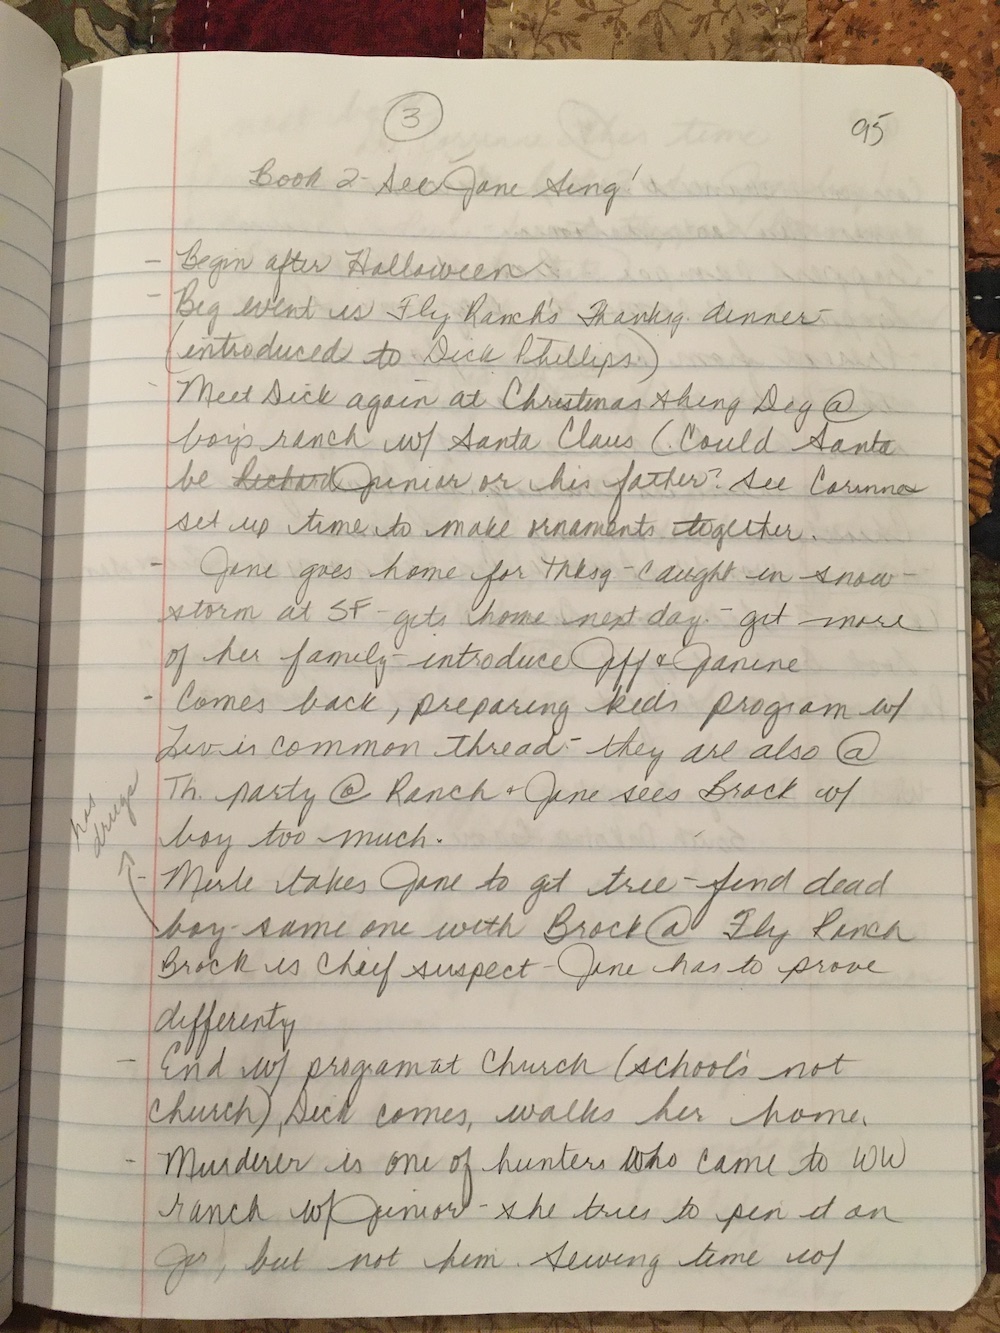 3
95
Book 2 - See Jane Sing!
- Begin after Halloween
- Big event is Fly Ranch's Thanksg. dinner -
(introduced to Dick Phillips)
- Meet Dick again at Christmas thing Dig @
boys ranch w/ Santa Claus (Could Santa
be Richard Junior or his father? See Corinne
set up time to make ornaments together.
- Jane goes home for Thksg - caught in snow -
storm at SF - gets home next day - get more
of her family - introduce Jeff & Janine
- Comes back, preparing kids program w/
Liv is common thread - they are also @
Th. party @ Ranch & Jane sees Brock w/
boy too much.
has
drugs
- Merle takes Jane to get tree - find dead
boy - same one with Brock @ Fly Ranch
Brock is Cheif suspect - Jane has to prove
differenty
- End w/ program at Church (school's not
church), Dick comes, walks her home.
- Murderer is one of hunters who came to WW
ranch w/ Junior - she tries to pin it on
Jr, but not him. Sewing time w/